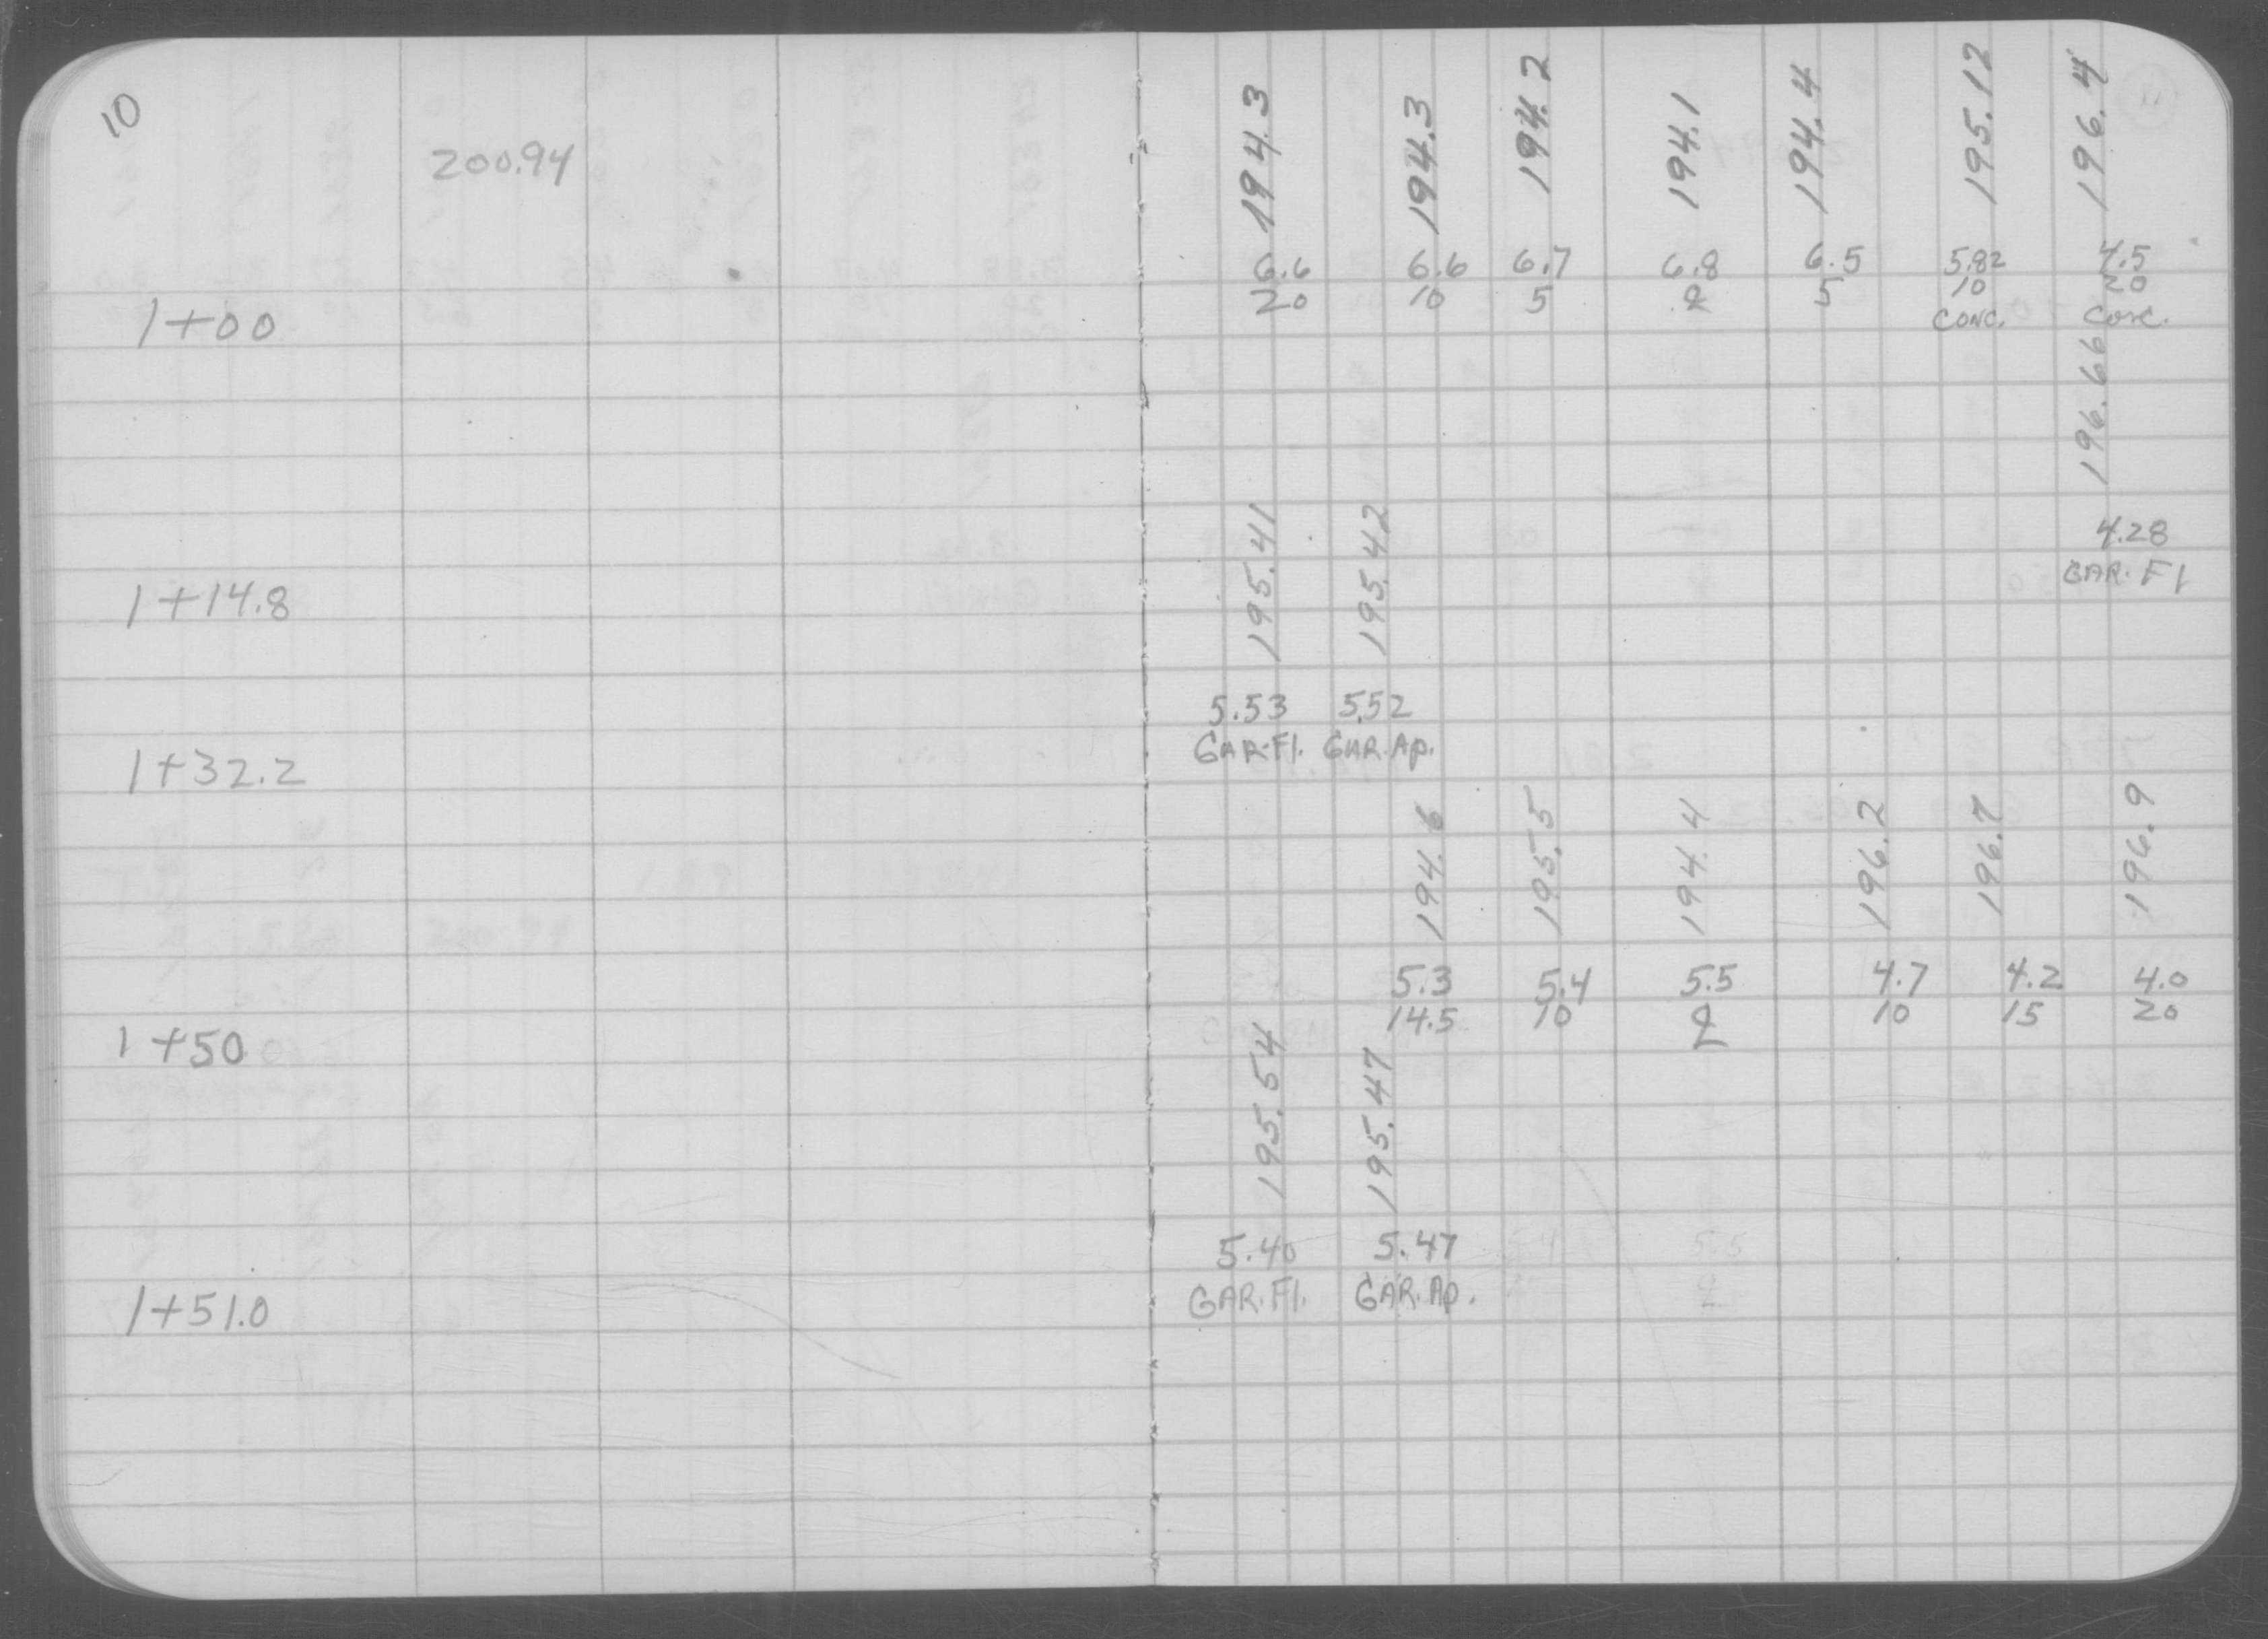 10
200.94
194.3 194.3 194.2 194.1 194.4 195.12 196.4
6.6 6.6 6.7 6.8 6.5 5.82 4.5
20 10 5 ℄ 5 10 20
1+00 CONC. Conc.
196.66
4.28
1+14.8 GAR. Fl
195.41 195.42
5.53 5.52
1+32.2 GAR.Fl. GAR.Ap.
194.6 195.5 194.4 196.2 196.7 196.9
5.3 5.4 5.5 4.7 4.2 4.0
1+50 14.5 10 ℄ 10 15 20
195.54 195.47
5.40 5.47
1+51.0 GAR.Fl. GAR.Ap.